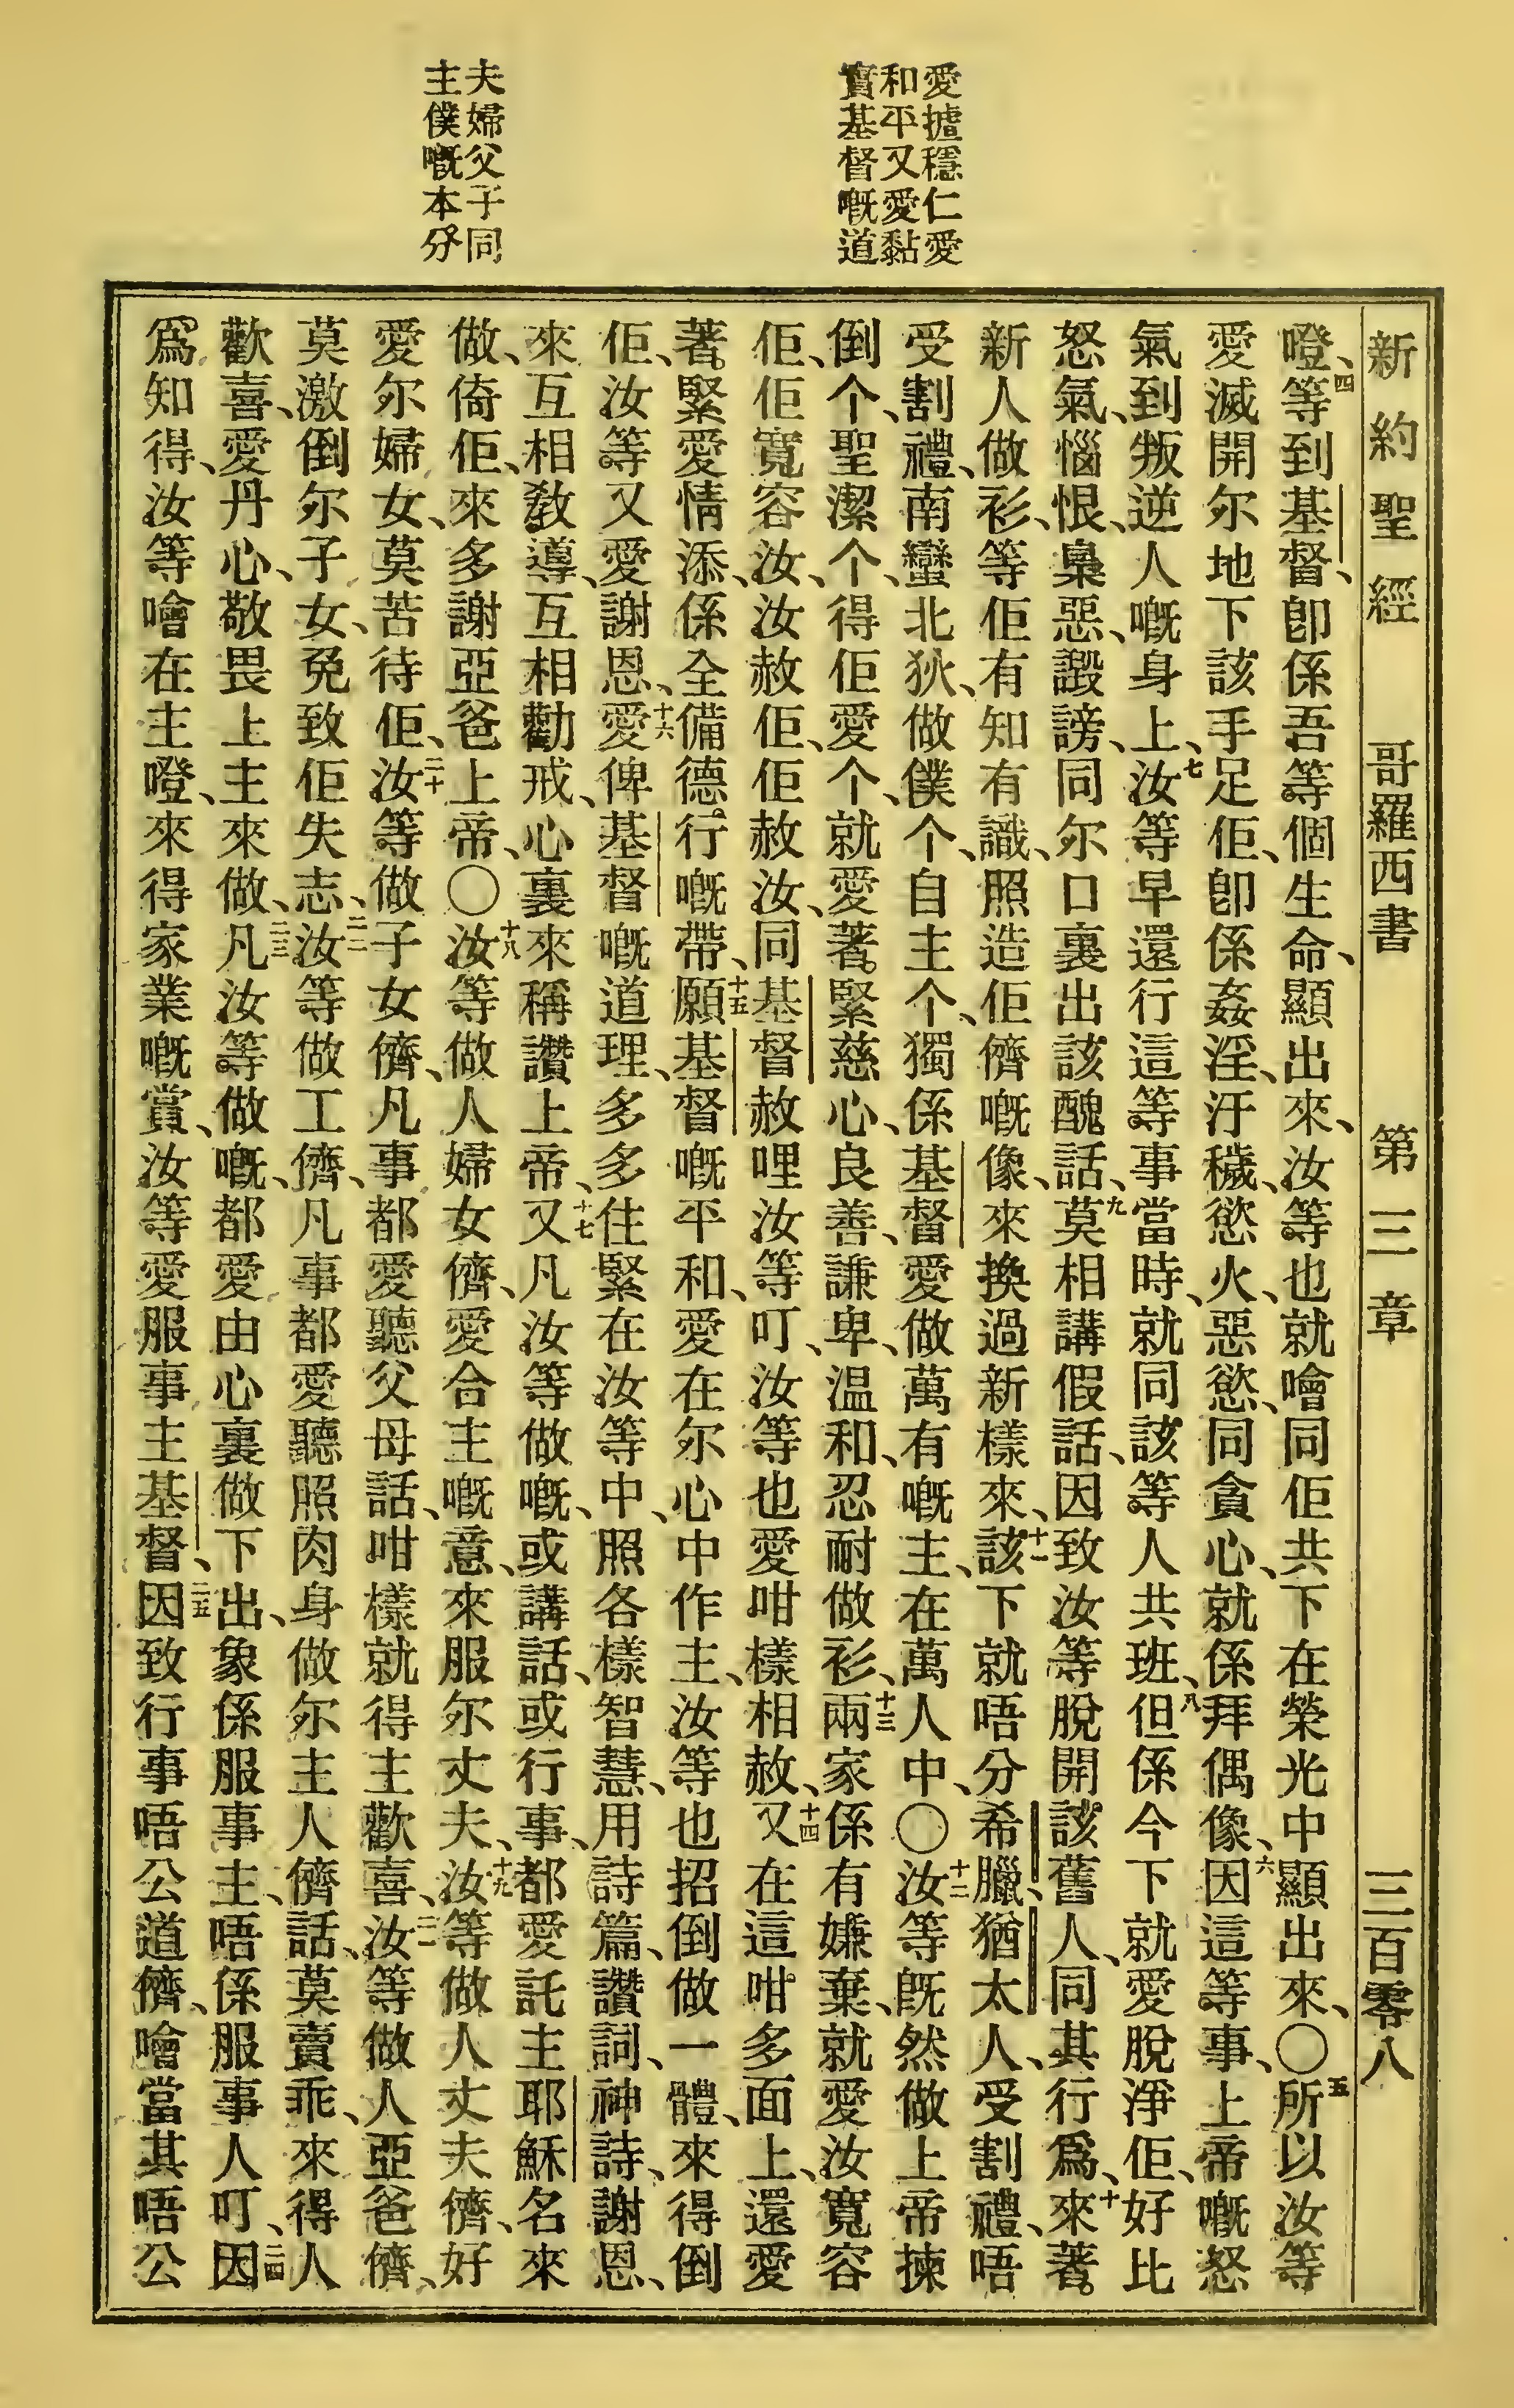 愛摣穩仁愛
和平又愛黏
實基督嘅道
夫婦父子同
主僕嘅本分
新約聖經 哥羅西書 第三章 三百零八
噔、四等到基督、卽係吾等個生命、顯出來、汝等也就噲同佢共下在榮光中顯出來、〇五所以汝等
愛滅開尔地下該手足佢、卽係姦淫、汙穢、慾火、惡慾、同貪心、就係拜偶像、六因這等事、上帝嘅怒
氣到叛逆人嘅身上、七汝等早還行這等事當時、就同該等人共班、八但係今下就愛脫淨佢、好比
怒氣、惱恨、梟惡、譭謗、同尔口裏出該醜話、九莫相講假話、因致汝等脫開該舊人、同其行爲、十來著
新人做衫、等佢有知有識、照造佢儕嘅像、來換過新樣來、十一該下就唔分希臘、猶太人、受割禮、唔
受割禮、南蠻北狄、做僕个、自主个、獨係基督愛做萬有嘅主、在萬人中、〇十二汝等旣然做上帝揀
倒个、聖潔个、得佢愛个、就愛著緊慈心、良善、謙卑、温和、忍耐做衫、十三兩家係有嫌棄、就愛汝寬容
佢、佢寬容汝、汝赦佢、佢赦汝、同基督赦哩汝等叮、汝等也愛咁樣相赦、十四又在這咁多面上、還愛
著緊愛情添、係全備德行嘅帶、十五願基督嘅平和、愛在尔心中作主、汝等也招倒做一體、來得倒
佢、汝等又愛謝恩、十六愛俾基督嘅道理、多多住緊在汝等中、照各樣智慧、用詩篇、讚詞、神詩、謝恩、
來互相敎導、互相勸戒、心裏來稱讚上帝、十七又凡汝等做嘅、或講話、或行事、都愛託主耶穌名來
做、倚佢、來多謝亞爸上帝、〇十八汝等做人婦女儕、愛合主嘅意、來服尔丈夫、十九汝等做人丈夫儕、好
愛尔婦女、莫苦待佢、二十汝等做子女儕、凡事都愛聽父母話、咁樣就得主歡喜、二一汝等做人亞爸儕、
莫激倒尔子女、免致佢失志、二二汝等做工儕、凡事都愛聽照肉身做尔主人儕話、莫賣乖、來得人
歡喜、愛丹心、敬畏上主來做、二三凡汝等做嘅、都愛由心裏做下出、象係服事主、唔係服事人叮、二四因
爲知得、汝等噲在主噔、來得家業嘅賞、汝等愛服事主基督、二五因致行事唔公道儕、噲當其唔公